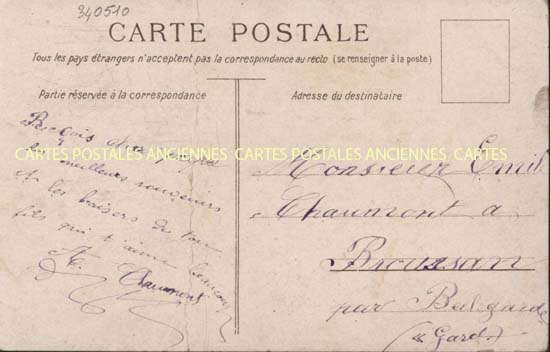 340510
CARTE POSTALE
Tous les pays étrangers n'acceptent pas la correspondance au recto (se renseigner à la poste)
Partie réservée à la correspondance
Adresse du destinataire
CARTES POSTALES ANCIENNES CARTES POSTALES ANCIENNES CARTES
meilleurs souvenirs
et les baisers de ton
fils qui t'aime beaucoup
E. Chaumont
Monsieur Emile
Chaumont a
Broussan
par Bellegarde
(Gard)